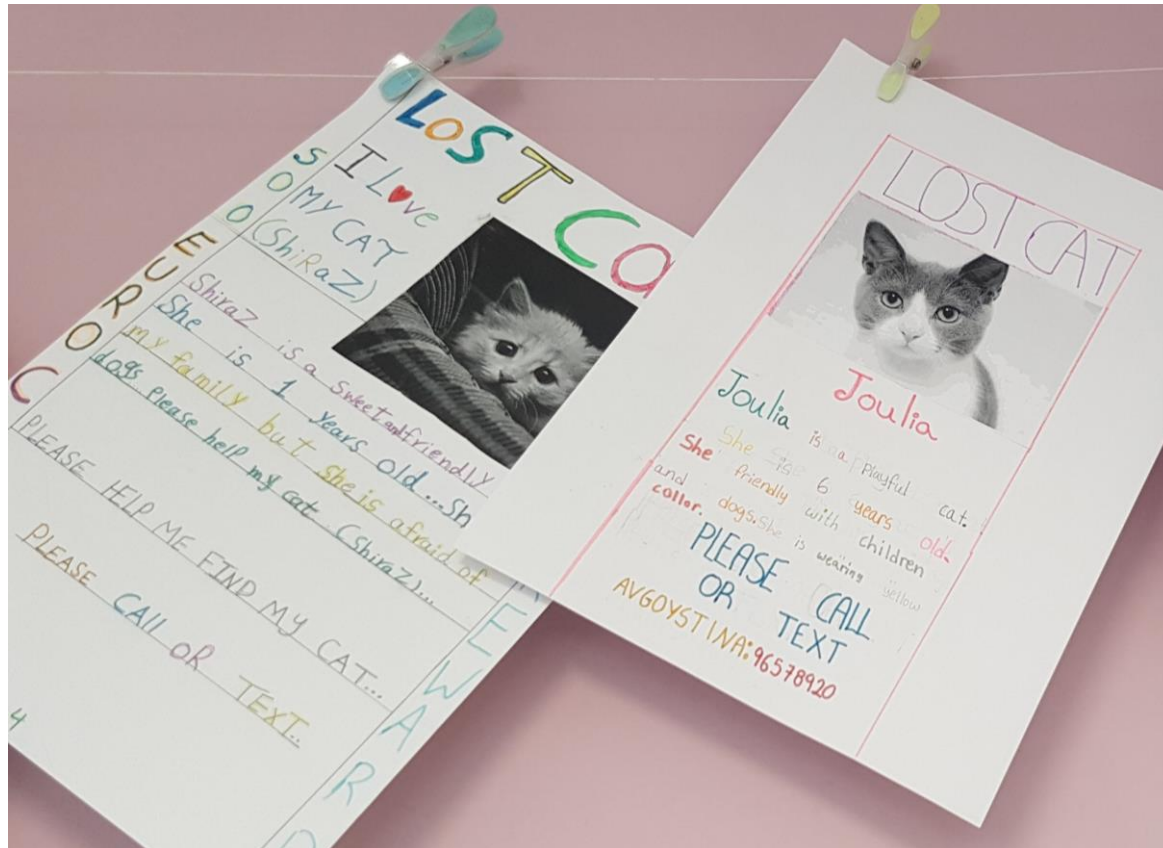 LoST Ca
SOO EURO C
I Love
MY CAT
(ShiRaZ)
Shiraz is a sweet and friendly
She is 1 years old...Sh
my family but she is afraid of
dogs please help my cat (shiraz)...
PLEASE HELP ME FIND MY CAT...
PLEASE CAll OR TEXT..
4
EWARD
LOST CAT
Joulia
Joulia is a playful cat.
She is 6 years old.
She friendly with children
and dogs.She is wearing yellow
collar.
PLEASE CALL
OR TEXT
AVGOYSTINA:96578920